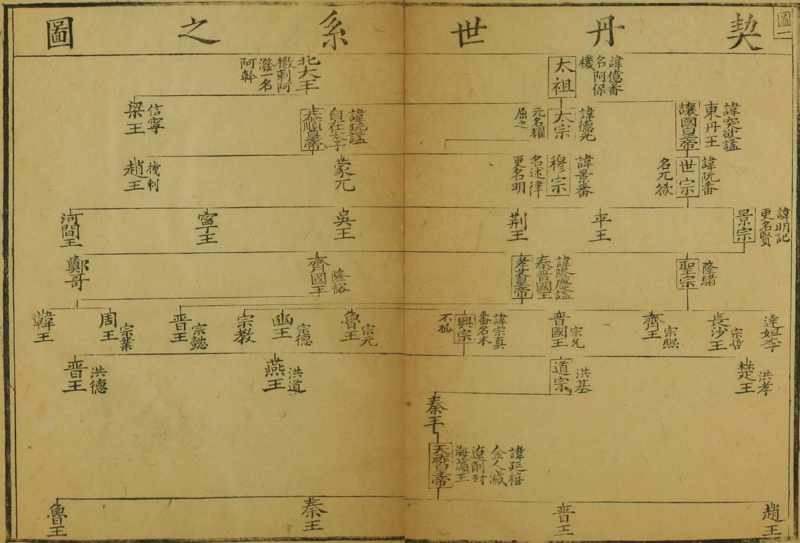 契丹世系之圖
圖一
太祖
諱億番
名阿保
機
北大王
撒剌阿
潑一名
阿幹
東丹王
讓國皇帝
太宗
諱德光
元名耀
屈之
諱阮謚
自在太子
恭順皇帝
信寧
梁王
諱阮番
世宗
名兀欲
諱景番
穆宗
名述律
更名明
蒙兀
趙王
諱明記
更名賢
景宗
平王
荆王
吳王
寧王
河間王
隆緒
聖宗
諱隆慶謚
秦晉國王
孝文皇帝
隆裕
齊國王
鄭哥
達妲李
長沙王
宗熙
齊王
宗允
晉國王
諱宗真
番名木
不孤
興宗
宗元
魯王
宗德
幽王
宗教
宗懿
晉王
宗業
周王
韓王
洪孝
楚王
洪基
道宗
洪道
燕王
洪德
晉王
秦王
諱延禧
金人滅
遼削封
海濱王
趙王
晉王
秦王
魯王